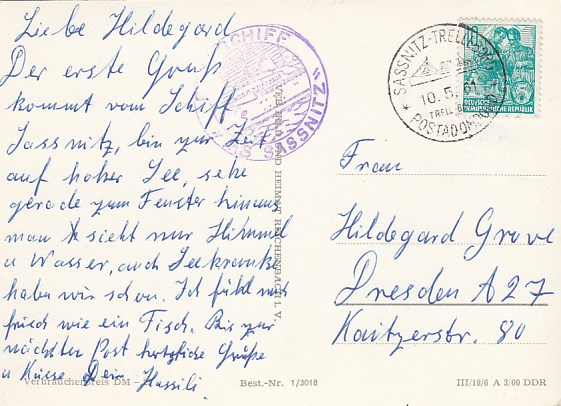 Liebe Hildegard
Der erste Gruß
kommt vom Schiff
Sassnitz, bin zur Zeit
auf hoher See, sehe
gerade zum Fenster hinaus
man sieht nur Himmel
u Wasser, auch Seekranke
haben wir schon. Ich fühl mich
frisch wie ein Fisch. Bis zur
nächsten Post herzliche Grüße
u Küsse Dein
SCHIFF
SASSNITZ"
SASSNITZ-TRELLEBORG
10.5.61
TRELLEB
POSTADORDO
DEUTSCHE
DEMOKRATISCHE REPUBLIK
5
Frau
Hildegard Grove
Dresden A27
Kaitzerstr. 80
VERLAG BILD UND HEIMAT REICHENBACH I. V.
Verbraucherpreis DM –
Best.-Nr. 1/3018
III/18/6 A 2/00 DDR